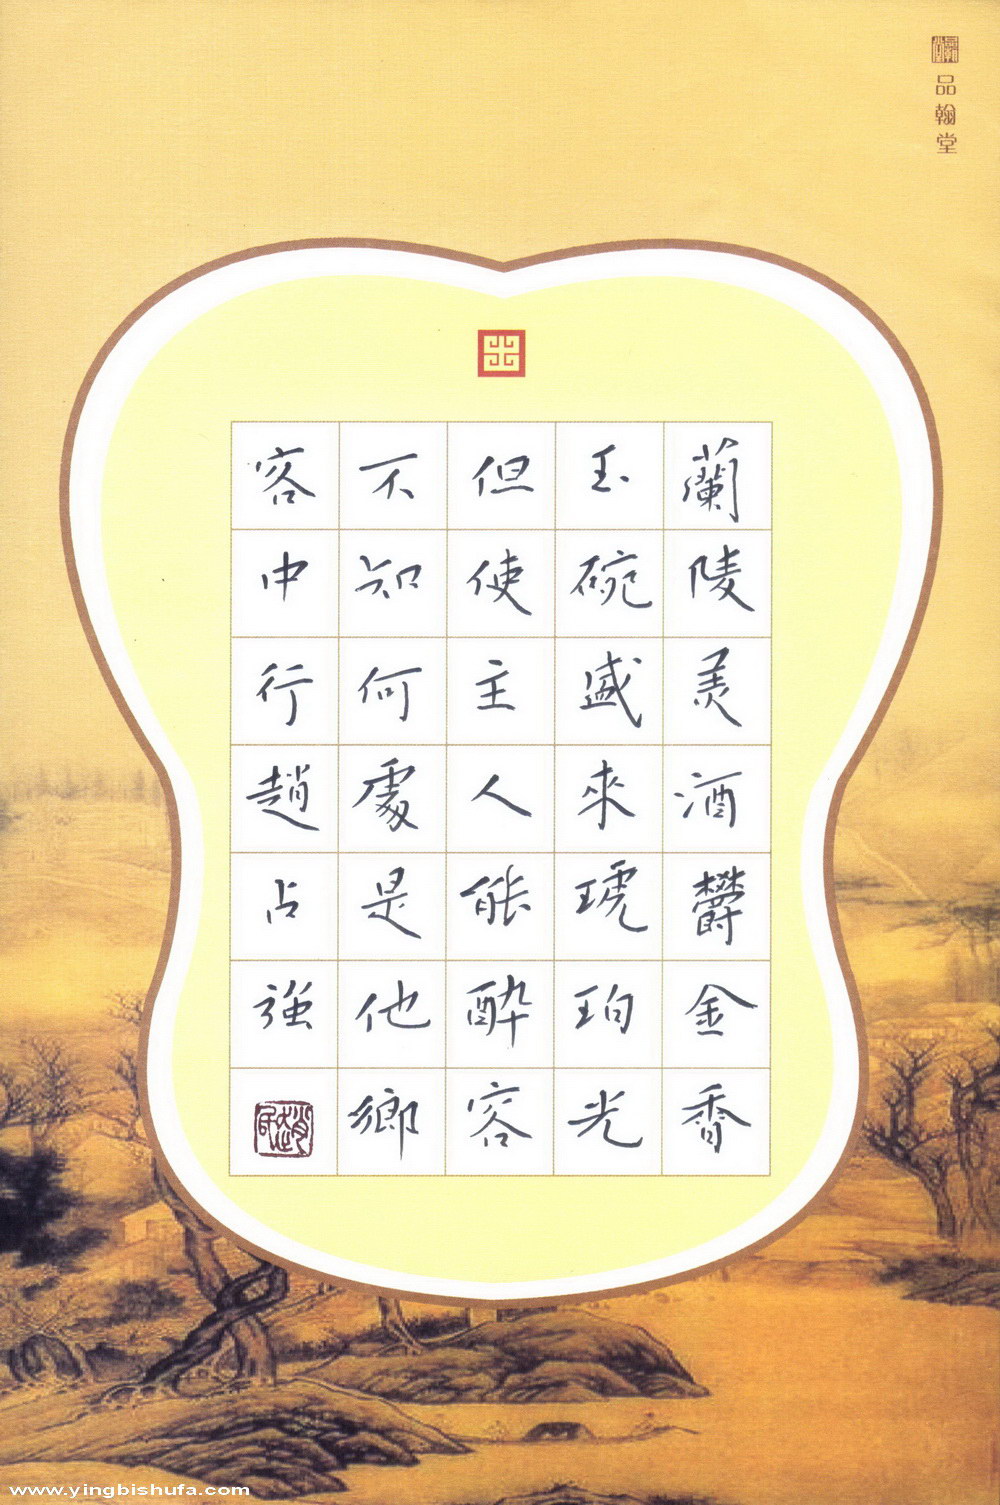 品翰堂
蘭陵美酒鬱金香
玉碗盛來琥珀光
但使主人能醉客
不知何處是他鄉
客中行趙占強
www.yingbishufa.com